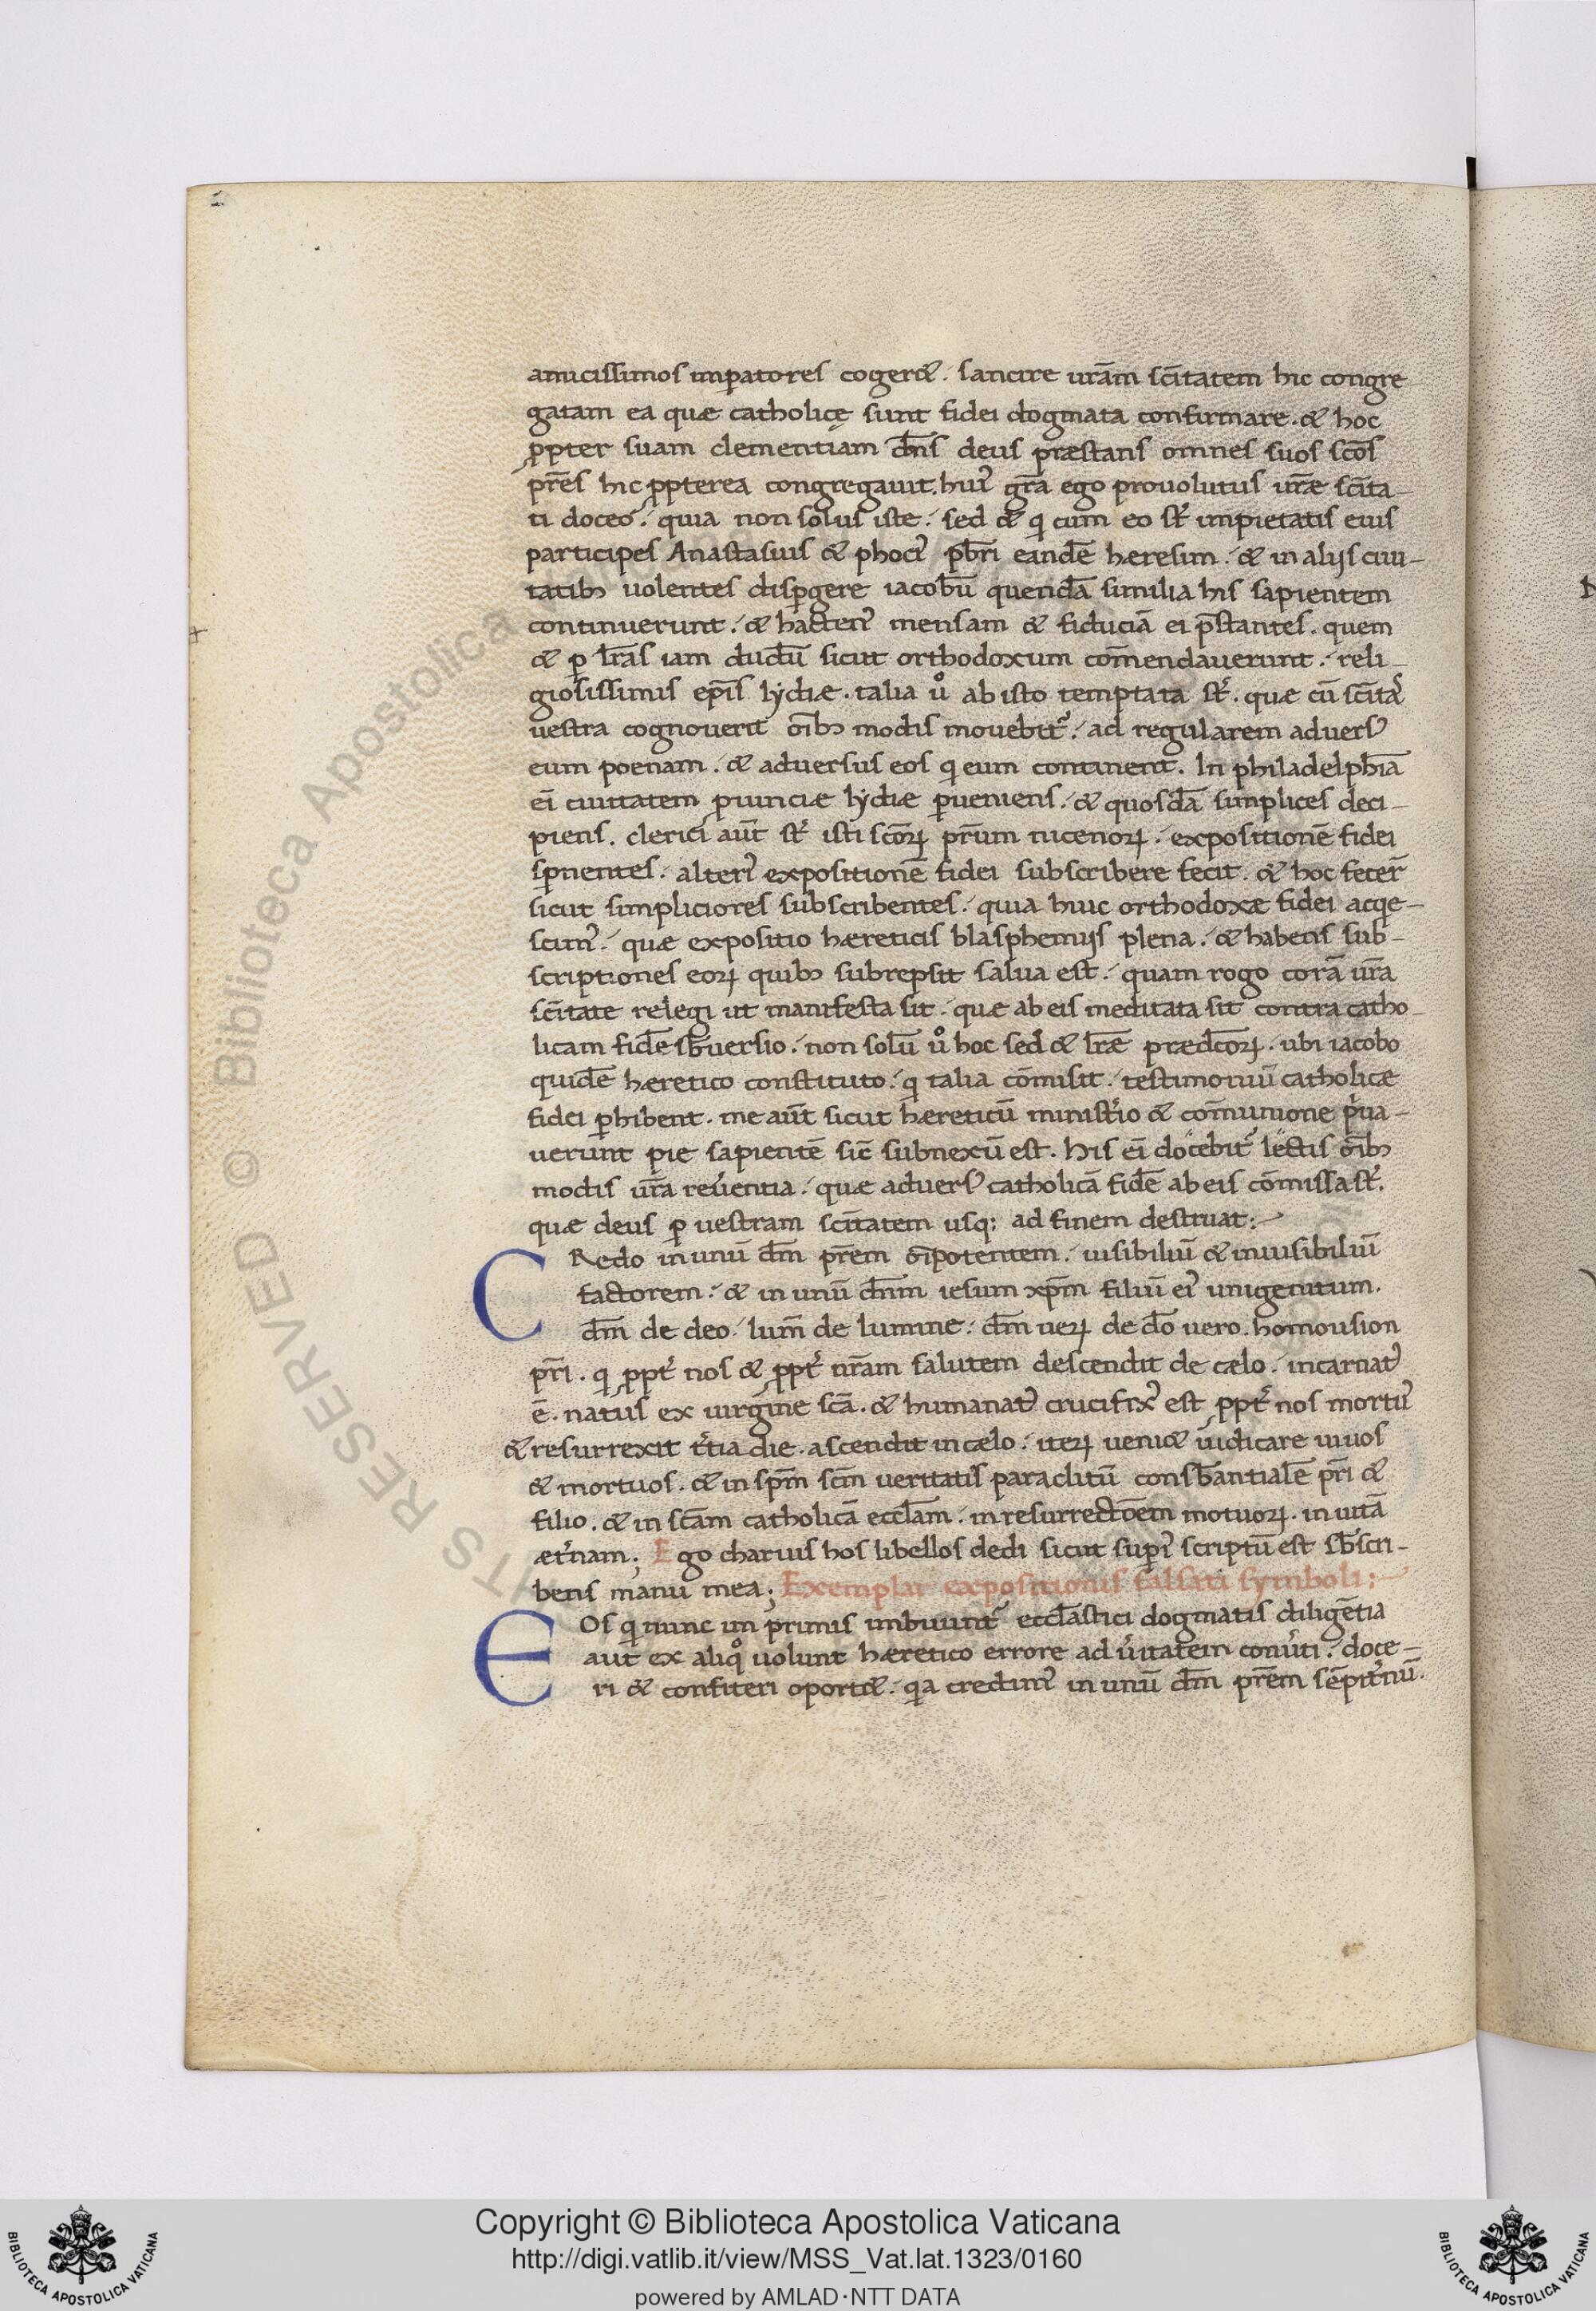 amicissimos imꝑatores cogere&. sancire ur̄am sc̄itatem hic congre
gatam ea quæ catholicę sunt fidei dogmata confirmare. & hoc
ꝓpter suam clementiam dn̄s deus præstans omnes suos sc̄os
pr̄es hic ꝓpterea congregauit. huiꝰ gr̄a ego prouolutus ur̄æ sc̄ita-
ti doceo. quia non solus iste. sed & qi cum eo st̄ impietatis eius
participes Anastasius & phociꝰ pbr̄i eandē hæresim. & in alijs ciui-
tatibꝫ uolentes disꝑgere iacobū quendā similia his sapientem
continuerunt. & hactenꝰ mensam & fiduciā ei p̄stantes. quem
& ꝑ lr̄as iam dudū sicut orthodoxum com̄endauerunt. reli-
giosissimis ep̄is lydiæ. talia uͦ ab isto temptata st̄. quæ cū sc̄itaſ
uestra cognouerit om̄ibꝫ modis mouebitᷣ. ad regularem aduersꝰ
eum poenam. & aduersus eos qi eum continent. In philadelphīa
ei̅ ciuitatem ꝓuinciæ lydiæ ꝑueniens. & quosdā simplices deci-
piens. clerici aut̄ st̄ isti sc̄oꝝ pr̄um nicenoꝝ. expositionē fidei
sꝑnentes. alteriꝰ expositionē fidei subscribere fecit. & hoc fecer̄
sicut simpliciores subscribentes. quia huic orthodoxæ fidei acqe-
scunt̄. quæ expositio hæreticis blasphemijs plena. & habens sub-
scriptiones eoꝝ quibꝫ subrepsit salua est. quam rogo corā ur̄a
sc̄itate relegi ut manifesta sit. quæ ab eis meditata sit contra catho-
licam fidē sb̄uersio. non solū uͦ hoc sed & lr̄æ prædc̄oꝝ. ubi iacobo
quidē hæretico constituto. qi talia com̄isit. testimoniū catholicæ
fidei ꝑhibent. me aut̄ sicut hæreticū ministꝰio & com̄unione pⁱua-
uerunt pie sapientē sic̄ subnexū est. his ei̅ docebitᷣ lectis om̄ibꝫ
modis ur̄a reuꝰentia. quæ aduersꝰ catholicā fidē ab eis com̄issa st̄.
quæ deus ꝑ uestram sc̄itatem usqꝫ ad finem destruat:
CRedo in unū dm̄ pr̄em om̄ipotentem. uisibiliū & inuisibiliū
factorem. & in unū dn̄m iesum xp̄m filiū eiꝰ unigenitum.
dm̄ de deo. lum̄ de lumine. dm̄ ueꝝ de do̅ uero. homousion
pr̄i. qi ꝓptꝰ nos & ꝓptꝰ nr̄am salutem descendit de cælo. incarnatꝰ
ē. natus ex uirgine sc̄a. & humanatꝰ crucifixꝰ est ꝓptꝰ nos mortuꝰ
& resurrexit tꝰtia die. ascendit in cælo. iteꝝ ueni& iudicare uiuos
& mortuos. & in sp̄m sc̄m ueritatis paraclitū consb̄antialē pr̄i &
filio. & in sc̄am catholicā eccl̄am. in resurrectōem motuoꝝ. in uitā
ætꝰnam; Ego charius hos libellos dedi sicut supꝰi scriptū est sb̄scri-
bens manu mea; Exemplar expositionis falsati symboli:
EOs qi nunc in primis imbuuntᷣ eccl̄astici dogmatis diligētia
aut ex aliqͦ uolunt hæretico errore ad uꝰitatem conuꝰti. doce-
ri & confiteri oport&. qia credimꝰ in unū dm̄ pr̄em sēpitꝰnū.
Copyright © Biblioteca Apostolica Vaticana
http://digi.vatlib.it/view/MSS_Vat.lat.1323/0160
powered by AMLAD·NTT DATA